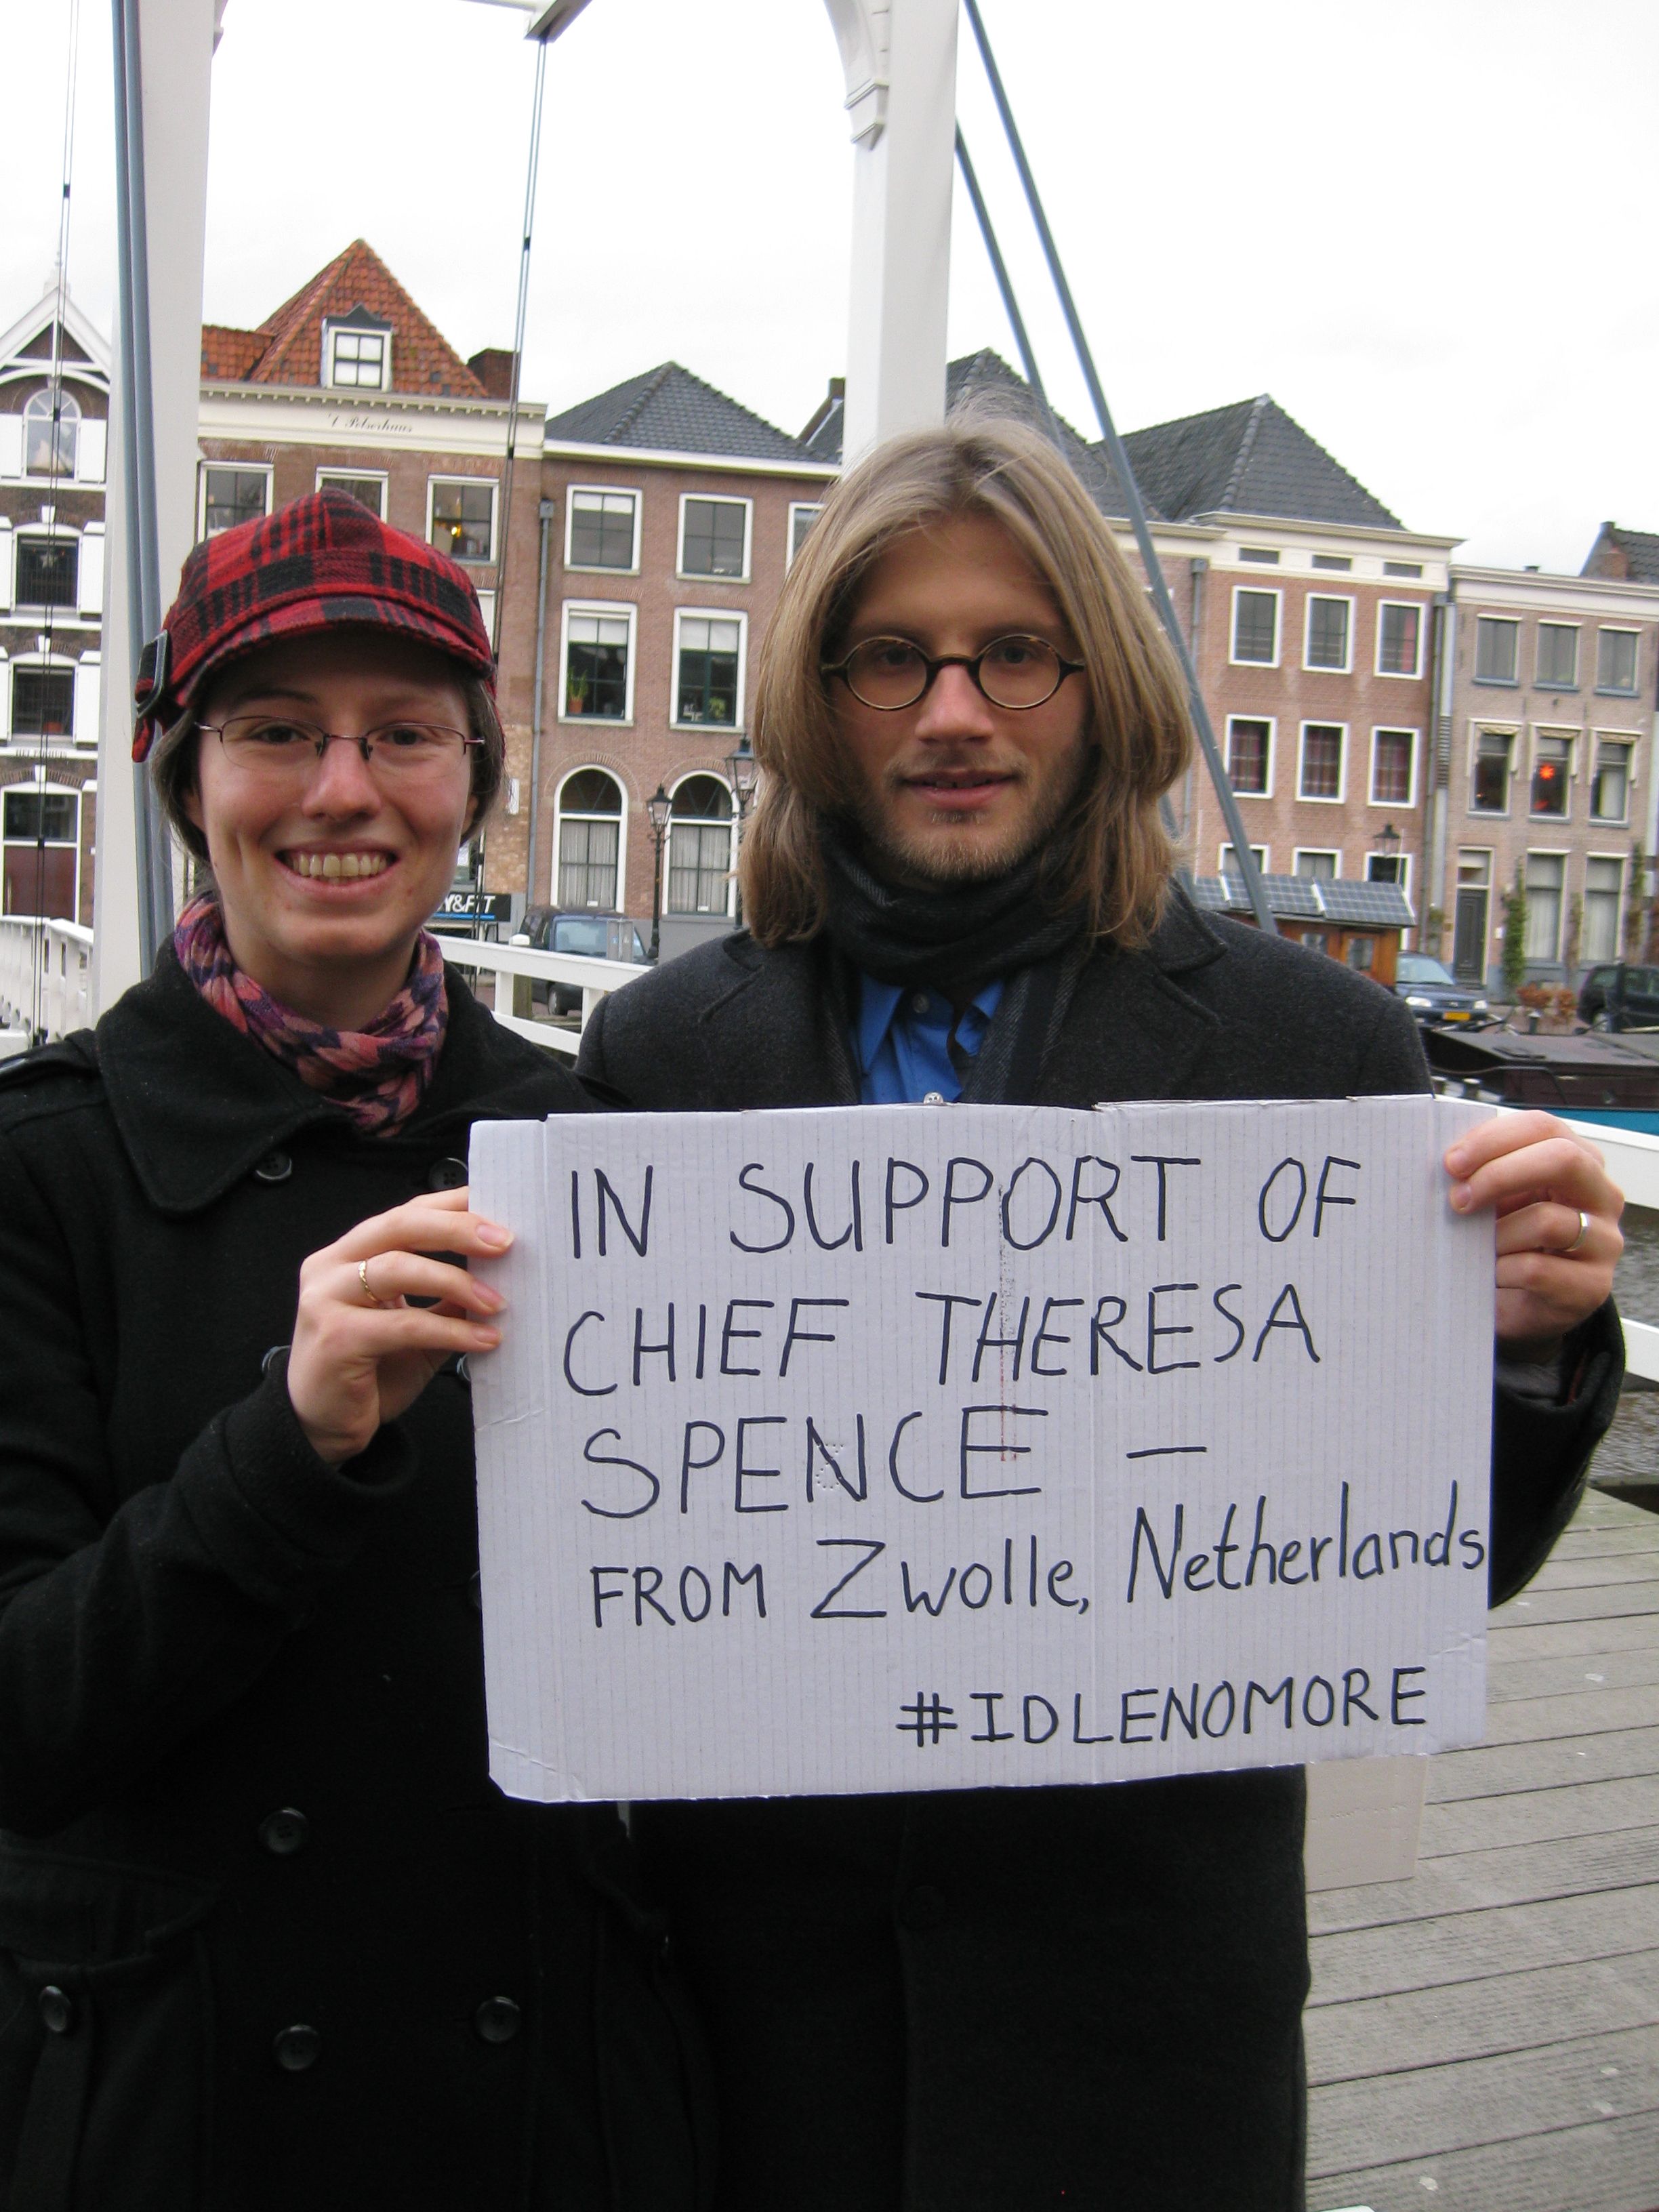 't Pelserhuis
Y&FIT
IN SUPPORT OF
CHIEF THERESA
SPENCE –
FROM Zwolle, Netherlands
#IDLENOMORE